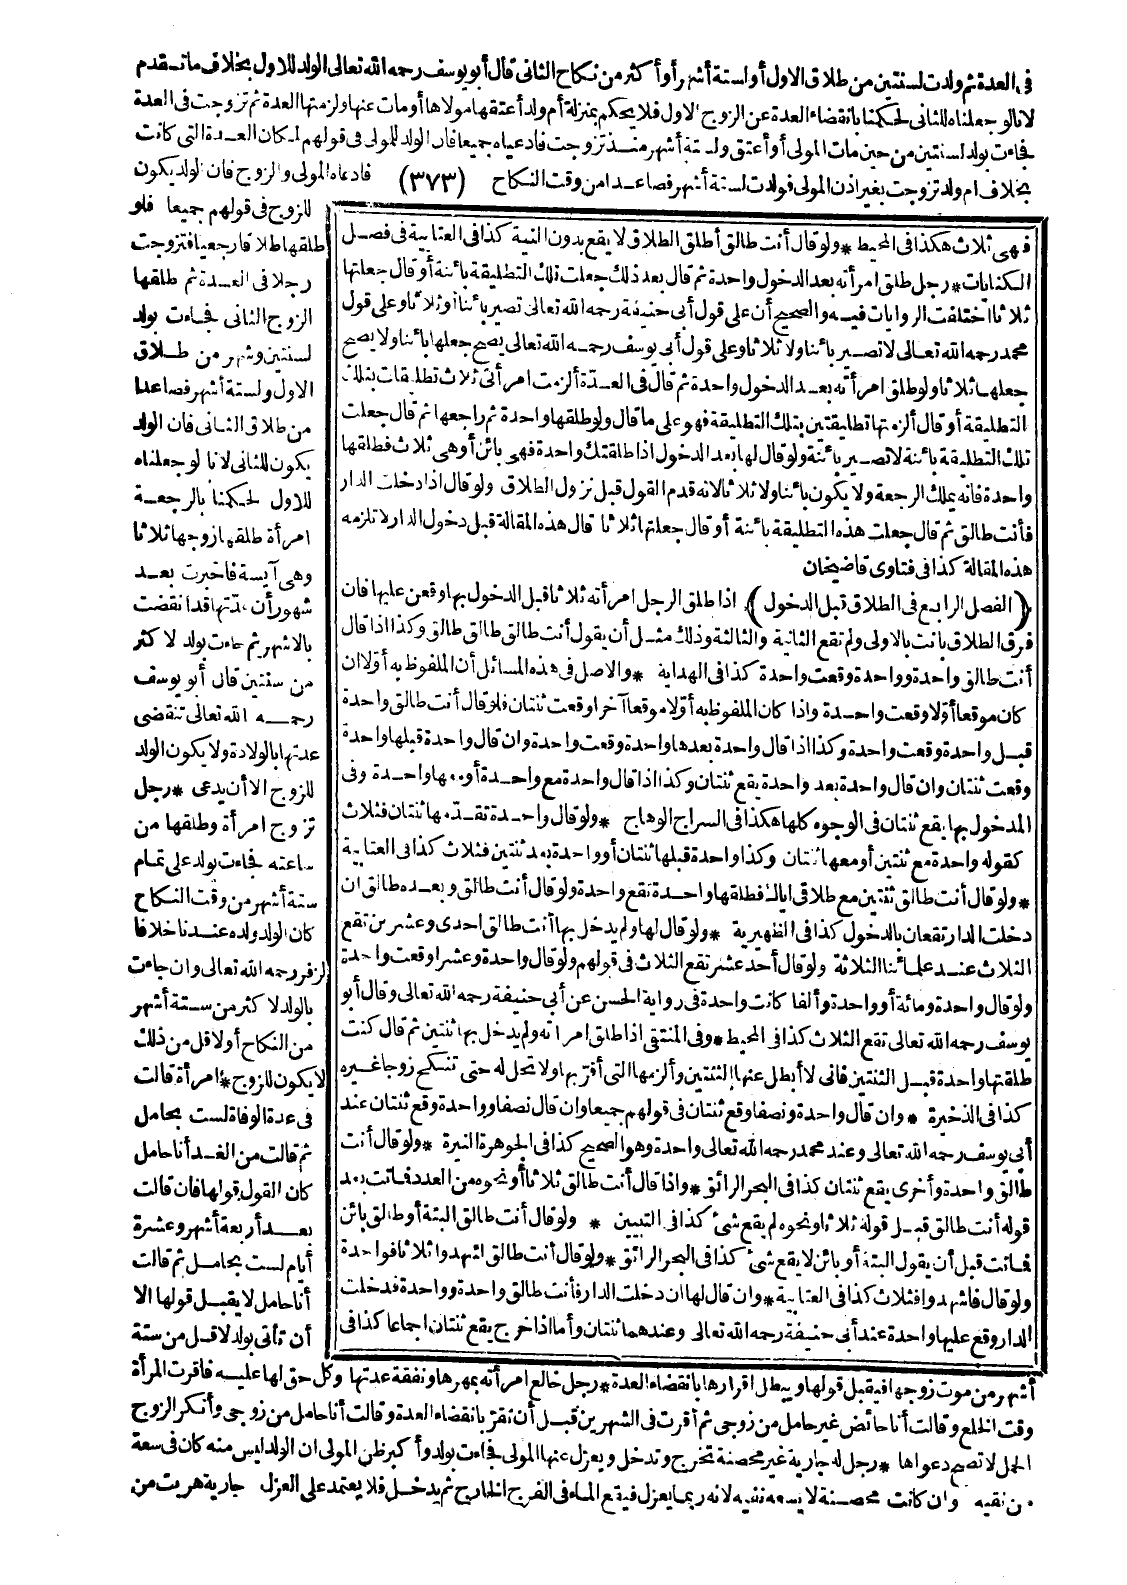 فى العدة ثم ولدت لسنتين من طلاق الاول أو لستة أشهر أو أكثر من نكاح الثانى قال أبو يوسف رحمه الله تعالى الولد للاول بخلاف ما تقدم
لانا لو جعلناه للثانى لحكمنا بانقضاء العدة عن الزوج الاول فلا يحكم بمنزلة أم ولد أعتقها مولاها أو مات عنها ولزمتها العدة ثم تزوجت فى العدة
فجاءت بولد لسنتين من حين مات المولى أو أعتق ولستة أشهر منذ تزوجت فادعياه جميعا فان الولد للمولى فى قولهم لمكان العدة التى كانت
بخلاف ام ولد تزوجت بغير اذن المولى فولدت لستة أشهر فصاعدا من وقت النكاح (٣٧٣) فادعاه المولى والزوج فان الولد يكون
للزوج فى قولهم جميعا فلو
طلقها طلاقا رجعيا فتزوجت
رجلا فى العدة ثم طلقها
الزوج الثانى فجاءت بولد
لسنتين وشهر من طلاق
الاول ولستة أشهر فصاعدا
من طلاق الثانى فان الولد
يكون للثانى لانا لو جعلناه
للاول لحكمنا بالرجعة
امرأة طلقها زوجها ثلاثا
وهى آيسة فاخبرت بعد
شهور أن عدتها قد انقضت
بالاشهر ثم جاءت بولد لاكثر
من سنتين قال أبو يوسف
رحمه الله تعالى تنقضى
عدتها بالولادة ولا يكون الولد
للزوج الا أن يدعى * رجل
تزوج امرأة وطلقها من
ساعته فجاءت بولد على تمام
ستة أشهر من وقت النكاح
كان الولد ولده عندنا خلافا
لزفر رحمه الله تعالى وان جاءت
بالولد لاكثر من ستة أشهر
من النكاح أو لاقل من ذلك
لا يكون للزوج * امرأة قالت
فى عدة الوفاة لست بحامل
ثم قالت من الغد أنا حامل
كان القول قولها فان قالت
بعد أربعة أشهر وعشرة
أيام لست بحامل ثم قالت
أنا حامل لا يقبل قولها الا
أن تأتى بولد لاقل من ستة
فهى ثلاث هكذا فى المحيط * ولو قال أنت طالق أطلق الطلاق لا يقع بدون النية كذا فى العتابية فى فصل
الكنايات * رجل طلق امرأته بعد الدخول واحدة ثم قال بعد ذلك جعلت تلك التطليقة بائنة أو قال جعلتها
ثلاثا اختلفت الروايات فيه والصحيح أن على قول أبى حنيفة رحمه الله تعالى تصير بائنا أو ثلاثا وعلى قول
محمد رحمه الله تعالى لا تصير بائنا ولا ثلاثا وعلى قول أبى يوسف رحمه الله تعالى يصح جعلها بائنا ولا يصح
جعلها ثلاثا ولو طلق امرأته بعد الدخول واحدة ثم قال فى العدة ألزمت امرأتى ثلاث تطليقات بتلك
التطليقة أو قال ألزمتها تطليقتين بتلك التطليقة فهو على ما قال ولو طلقها واحدة ثم راجعها ثم قال جعلت
تلك التطليقة بائنة لا تصير بائنة ولو قال لها بعد الدخول اذا طلقتك واحدة فهى بائن أو هى ثلاث فطلقها
واحدة فانه يملك الرجعة ولا يكون بائنا ولا ثلاثا لانه قدم القول قبل نزول الطلاق ولو قال اذا دخلت الدار
فأنت طالق ثم قال جعلت هذه التطليقة بائنة أو قال جعلتها ثلاثا قال هذه المقالة قبل دخول الدار لا تلزمه
هذه المقالة كذا فى فتاوى قاضيخان
(الفصل الرابع فى الطلاق قبل الدخول) اذا طلق الرجل امرأته ثلاثا قبل الدخول بها وقعن عليها فان
فرق الطلاق بانت بالاولى ولم تقع الثانية والثالثة وذلك مثل أن يقول أنت طالق طالق طالق وكذا اذا قال
أنت طالق واحدة وواحدة وقعت واحدة كذا فى الهداية * والاصل فى هذه المسائل أن الملفوظ به أولا ان
كان موقعا أولا وقعت واحدة واذا كان الملفوظ به أولا موقعا آخرا وقعت ثنتان فلو قال أنت طالق واحدة
قبل واحدة وقعت واحدة وكذا اذا قال واحدة بعدها واحدة وقعت واحدة وان قال واحدة قبلها واحدة
وقعت ثنتان وان قال واحدة بعد واحدة يقع ثنتان وكذا اذا قال واحدة مع واحدة أو معها واحدة وفى
المدخول بها يقع ثنتان فى الوجوه كلها هكذا فى السراج الوهاج * ولو قال واحدة تقدمها ثنتان فثلاث
كقوله واحدة مع ثنتين أو معها ثنتان وكذا واحدة قبلها ثنتان أو واحدة بعد ثنتين فثلاث كذا فى العتابية
* ولو قال أنت طالق ثنتين مع طلاقى اياك فطلقها واحدة تقع واحدة ولو قال أنت طالق وبعده طالق ان
دخلت الدار تقعان بالدخول كذا فى الظهيرية * ولو قال لها ولم يدخل بها أنت طالق احدى وعشرين تقع
الثلاث عند علمائنا الثلاثة ولو قال أحد عشر تقع الثلاث فى قولهم ولو قال واحدة وعشرا وقعت واحدة
ولو قال واحدة ومائة أو واحدة وألفا كانت واحدة فى رواية الحسن عن أبى حنيفة رحمه الله تعالى وقال أبو
يوسف رحمه الله تعالى تقع الثلاث كذا فى المحيط * وفى المنتقى اذا طلق امرأته ولم يدخل بها ثنتين ثم قال كنت
طلقتها واحدة قبل الثنتين فانى لا أبطل عنها الثنتين وألزمها التى أقر بها ولا تحل له حتى تنكح زوجا غيره
كذا فى الذخيرة * وان قال واحدة ونصفا وقع ثنتان فى قولهم جميعا وان قال نصفا وواحدة وقع ثنتان عند
أبى يوسف رحمه الله تعالى وعند محمد رحمه الله تعالى واحدة وهو الصحيح كذا فى الجوهرة النيرة * ولو قال أنت
طالق واحدة وأخرى يقع ثنتان كذا فى البحر الرائق * واذا قال أنت طالق ثلاثا أو نحوه من العدد فماتت بعد
قوله أنت طالق قبل قوله ثلاثا ونحوه لم يقع شئ كذا فى التبيين * ولو قال أنت طالق البتة أو طالق بائن
فماتت قبل أن يقول البتة أو بائن لا يقع شئ كذا فى البحر الرائق * ولو قال أنت طالق اشهدوا ثلاثا فواحدة
ولو قال فاشهدوا فثلاث كذا فى العتابية * وان قال لها ان دخلت الدار فأنت طالق واحدة وواحدة فدخلت
الدار وقع عليها واحدة عند أبى حنيفة رحمه الله تعالى وعندهما ثنتان وأما اذا خرج يقع ثنتان اجماعا كذا فى
أشهر من موت زوجها فيقبل قولها ويبطل اقرارها بانقضاء العدة * رجل خالع امرأته بمهرها ونفقة عدتها وكل حق لها عليه فاقرت المرأة
وقت الخلع وقالت أنا حائض غير حامل من زوجى ثم أقرت فى الشهرين قبل أن تقر بانقضاء العدة وقالت أنا حامل من زوجى وأنكر الزوج
الحمل لا تصح دعواها * رجل له جارية غير محصنة تخرج وتدخل ويعزل عنها المولى فجاءت بولد وأكبر ظن المولى ان الولد ليس منه كان فى سعة
من نفيه وان كانت محصنة لا يسعه نفيه لانه ربما يعزل فيقع الماء فى الفرج الخارج ثم يدخل فلا يعتمد على العزل جارية هربت من